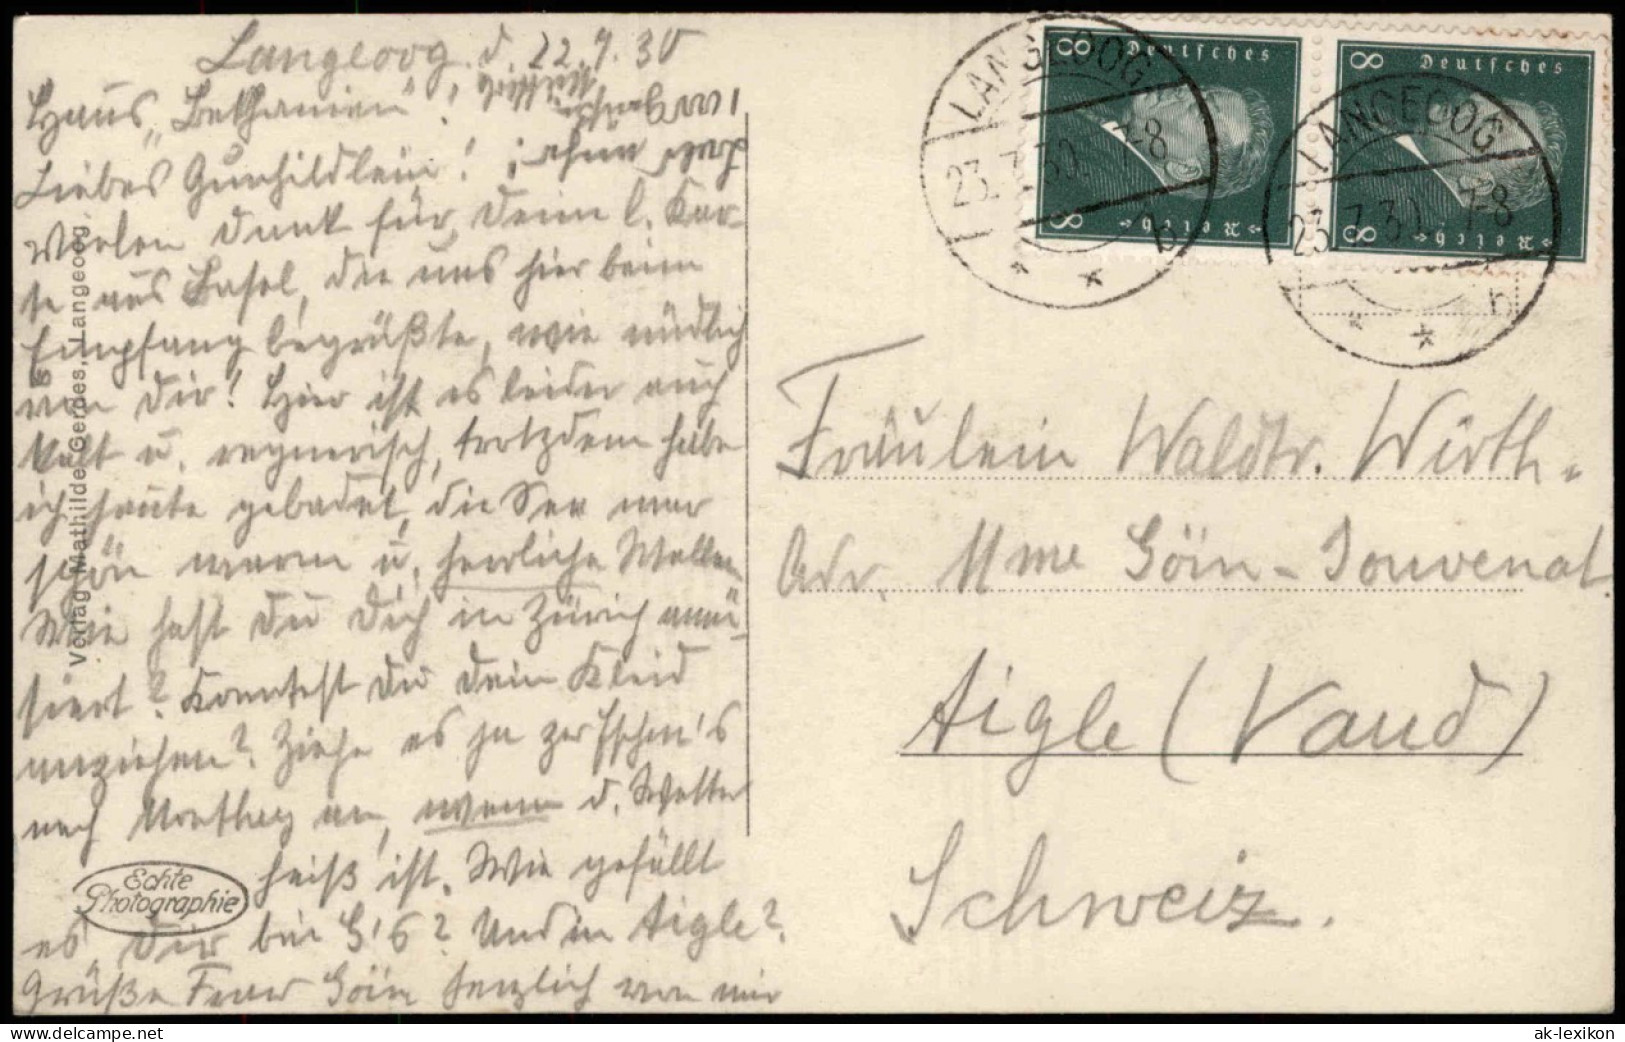 Langeoog. d. 22.7.30
Haus "Bethanien"!
Liebes Gunhildlein!
Vielen Dank für Deine l. Kar-
te aus Basel, die uns hier beim
Empfang begrüßte, wie niedlich
von Dir! Hier ist es leider auch
kalt u. regnerisch, trotzdem habe
ich heute gebadet, die See war
schön warm u. herrliche Wellen
Wie hast Du Dich in Zürich amü-
siert? Konntest Du Dein Kleid
anziehen? Ziehe es ja zer
nach an, wenn d. Wetter
heiß ist. Wie gefällt
es Dir bei G's? Und in Aigle?
Grüße Frau Göin herzlich von mir
Verlag Mathilde Gerdes, Langeoog
Echte
Photographie
LANGEOOG
23.7.30. 7-8
b
LANGEOOG
23.7.30. 7-8
b
8 Deutsches
Reich 8
8 Deutsches
Reich 8
Fräulein Waldtr. Wirth.
Adr. Mme Göin-Jouvenat.
Aigle (Vaud)
Schweiz.
ak-ansichtskarten.de
ak-lexikon